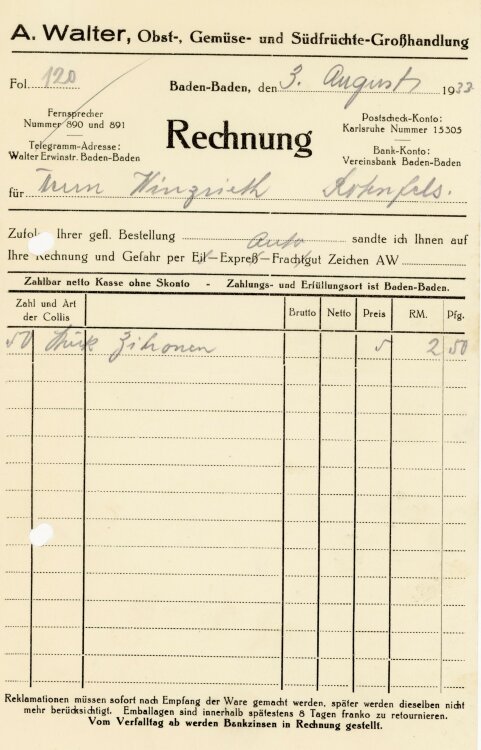 A. Walter, Obst-, Gemüse- und Südfrüchte-Großhandlung
Fol. 120
Baden-Baden, den 3. August 1933
Fernsprecher
Nummer 890 und 891
Telegramm-Adresse:
Walter Erwinstr. Baden-Baden
Rechnung
Postscheck-Konto:
Karlsruhe Nummer 15305
Bank-Konto:
Vereinsbank Baden-Baden
für
Zufolge Ihrer gefl. Bestellung Auto sandte ich Ihnen auf
Ihre Rechnung und Gefahr per Eil-Expreß-Frachtgut Zeichen AW
Zahlbar netto Kasse ohne Skonto - Zahlungs- und Erfüllungsort ist Baden-Baden.
Zahl und Art der Collis Brutto Netto Preis RM. Pfg.
50 Stück Zitronen 5 2 50
Reklamationen müssen sofort nach Empfang der Ware gemacht werden, später werden dieselben nicht
mehr berücksichtigt. Emballagen sind innerhalb spätestens 8 Tagen franko zu retournieren.
Vom Verfalltag ab werden Bankzinsen in Rechnung gestellt.